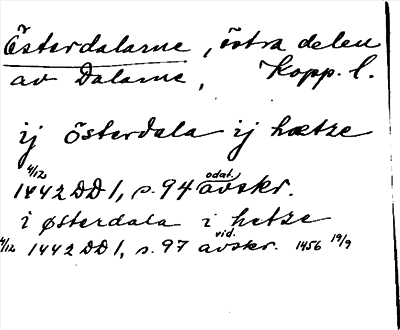 Österdalarne, östra delen
av Dalarne, Kopp. l.
ij österdala ij hætze
4/12 1442 DD 1, s. 94 odat. avskr.
i østerdala i hetze
4/12 1442 DD 1, s. 97 vid. avskr. 1456 19/9